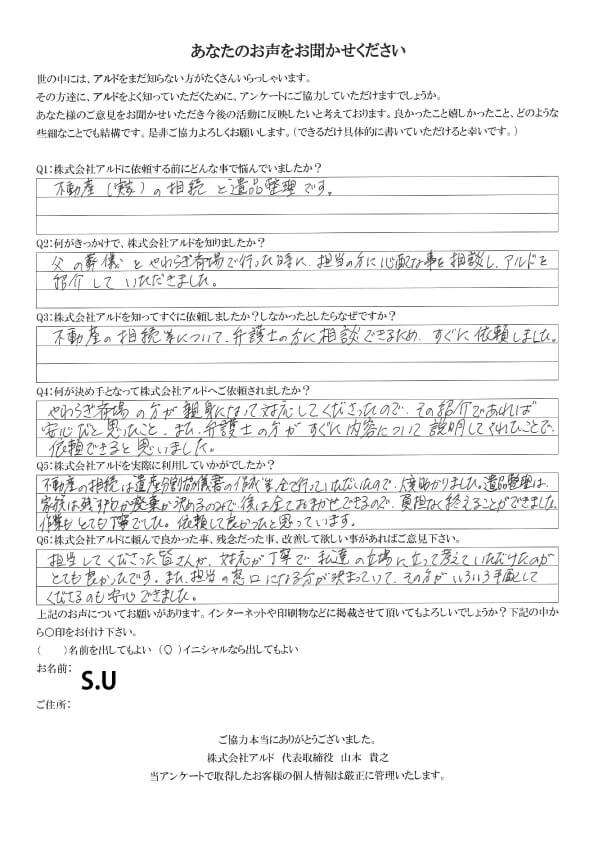 あなたのお声をお聞かせください
世の中には、アルドをまだ知らない方がたくさんいらっしゃいます。
その方達に、アルドをよく知っていただくために、アンケートにご協力していただけますでしょうか。
あなた様のご意見をお聞かせいただき今後の活動に反映したいと考えております。良かったこと嬉しかったこと、どのような
些細なことでも結構です。是非ご協力よろしくお願いします。(できるだけ具体的に書いていただけると幸いです。)
Q1:株式会社アルドに依頼する前にどんな事で悩んでいましたか?
不動産(実家)の相続と遺品整理です。
Q2:何がきっかけで、株式会社アルドを知りましたか?
父の葬儀をやわらぎ斎場で行った時に、担当の方に心配な事を相談し、アルドを
紹介していただきました。
Q3:株式会社アルドを知ってすぐに依頼しましたか?しなかったとしたらなぜですか?
不動産の相続等について、弁護士の方に相談できるため、すぐに依頼しました。
Q4:何が決め手となって株式会社アルドへご依頼されましたか?
やわらぎ斎場の方が親身になって対応してくださったので、その紹介であれば
安心だと思ったこと、また、弁護士の方がすぐに内容について説明してくれたことで、
依頼できると思いました。
Q5:株式会社アルドを実際に利用していかがでしたか?
不動産の相続は遺産分割協議書の作成等全て行っていただいたので、大変助かりました。遺品整理は、
家族は残すものか廃棄か決めるのみで、後は全ておまかせできるので、負担なく終えることができました。
作業もとても丁寧でした。依頼して良かったと思っています。
Q6:株式会社アルドに頼んで良かった事、残念だった事、改善して欲しい事があればご意見下さい。
担当してくださった皆さんが、対応が丁寧で私達の立場に立って考えていただけたのが
とても良かったです。また、担当の窓口になる方が決まっていて、その方がいろいろ手配して
くださるのも安心できました。
上記のお声についてお願いがあります。インターネットや印刷物などに掲載させて頂いてもよろしいでしょうか?下記の中か
ら〇印をお付け下さい。
( )名前を出してもよい (〇)イニシャルなら出してもよい
お名前:
S.U
ご住所:
ご協力本当にありがとうございました。
株式会社アルド 代表取締役 山本 貴之
当アンケートで取得したお客様の個人情報は厳正に管理いたします。